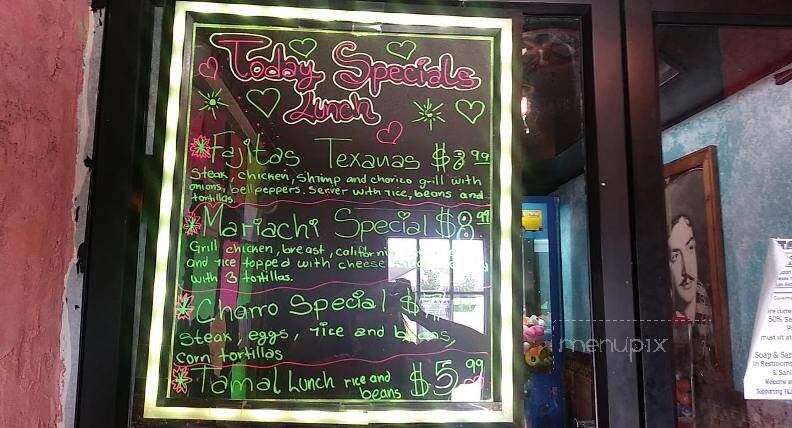 Today Specials
Lunch
Fajitas Texanas $8.99
Steak, chicken, shrimp and chorico grill with
onions, bellpeppers. Server with rice, beans and
tortillas.
Mariachi Special $8.99
Grill chicken, breast, californi
and rice topped with cheese
with 3 tortillas.
Charro Special $7
Steak, eggs, rice and beans,
corn tortillas
Tamal Lunch rice and
beans $5.99
menupix
50% Se
must sit at
Soap & San
in Restrooms
& Sani
Welcome
Supporting